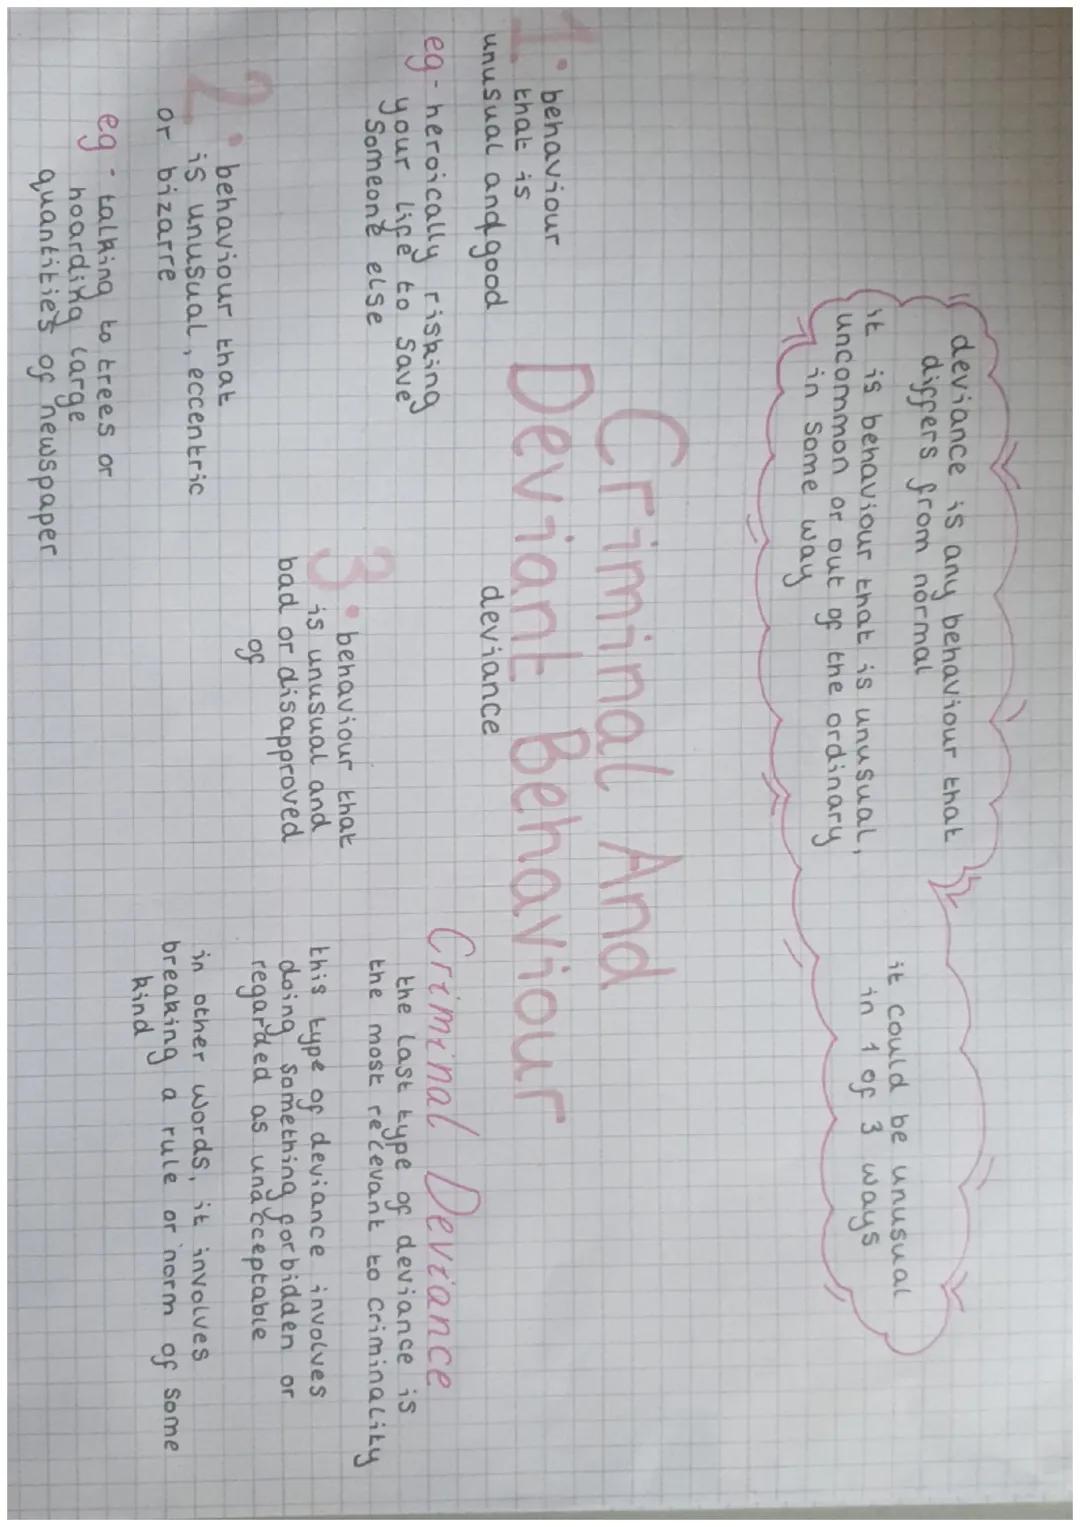 deviance is any behaviour that
differs from normal
it is behaviour that is unusual,
uncommon or out of the ordinary
in some way
it could be unusual
in 1 of 3 ways
Criminal And
Deviant Behaviour
deviance
1. behaviour
that is
unusual and good
eg - heroically risking
your life to save
someone else
2. behaviour that
is unusual, eccentric
or bizarre
eg - talking to trees or
hoarding large
quantities of newspaper
3. behaviour that
is unusual and
bad or disapproved
of
Criminal Deviance
the last type of deviance is
the most relevant to criminality
this type of deviance involves
doing something forbidden or
regarded as unacceptable
in other words, it involves
breaking a rule or norm of some
kind